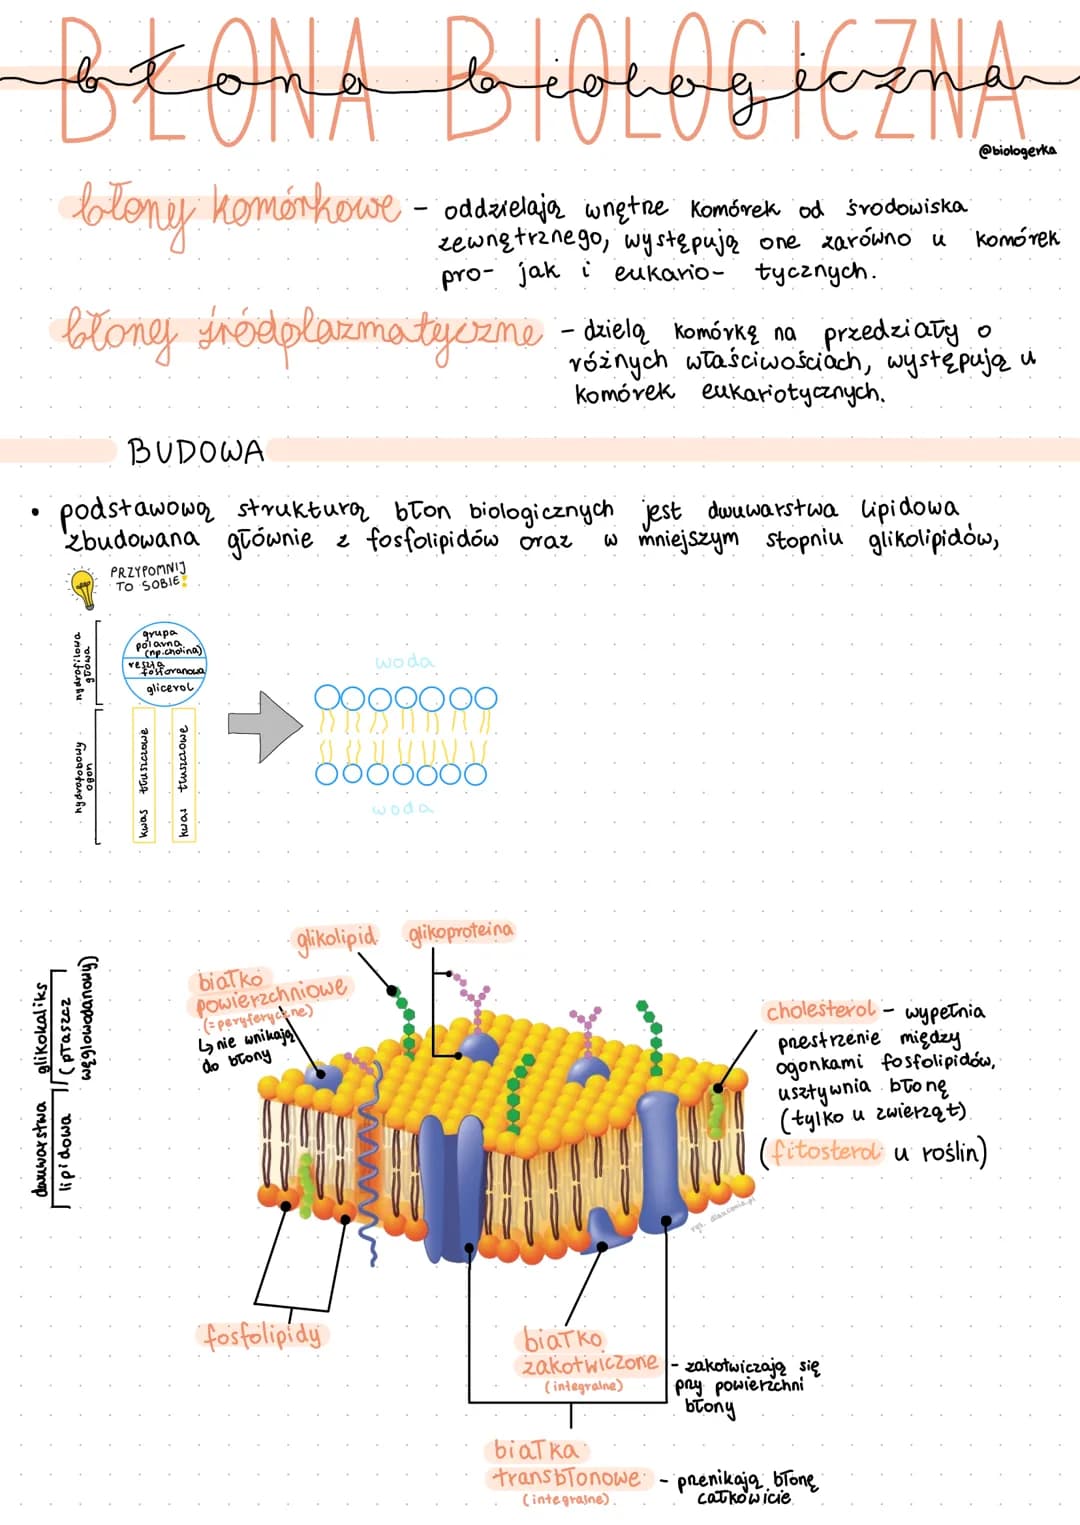 BŁONA BIOLOGICZNA
błona biologiczna
@biologerka
błony komórkowe - oddzielają wnętrze komórek od środowiska
zewnętrznego, występują one zarówno u komórek
pro- jak i eukario- tycznych.
błony śródplazmatyczne - dzielą komórkę na przedziały o
różnych właściwościach, występują u
komórek eukariotycznych.
BUDOWA
• podstawową strukturą błon biologicznych jest dwuwarstwa lipidowa
zbudowana głównie z fosfolipidów oraz w mniejszym stopniu glikolipidów,
PRZYPOMNIJ
TO SOBIE!
hydrofilowa
głowa
grupa
polarna
(np.cholina)
reszta
fosforanowa
glicerol
hydrofobowy
ogon
kwas tłuszczowe
kwas tłuszczowe
woda
woda
glikolipid
glikoproteina
białko
powierzchniowe
(= peryferyczne)
↳ nie wnikają
do błony
glikokaliks
(płaszcz
węglowodanowy)
dwuwarstwa
lipidowa
cholesterol - wypełnia
przestrzenie między
ogonkami fosfolipidów,
usztywnia błonę
(tylko u zwierząt)
(fitosterol u roślin)
rys. dlaucznia.pl
fosfolipidy
białko
zakotwiczone - zakotwiczają się
(integralne) przy powierzchni
błony
białka
transbłonowe - przenikają błonę
(integralne) całkowicie